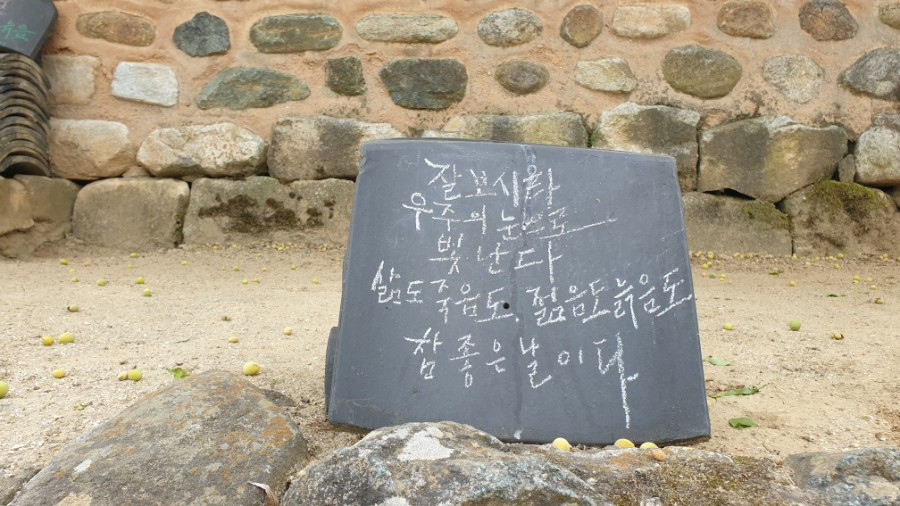 잘 보시라
우주의 눈으로
빛난다
삶도 죽음도, 젊음도 늙음도
참 좋은 날이다